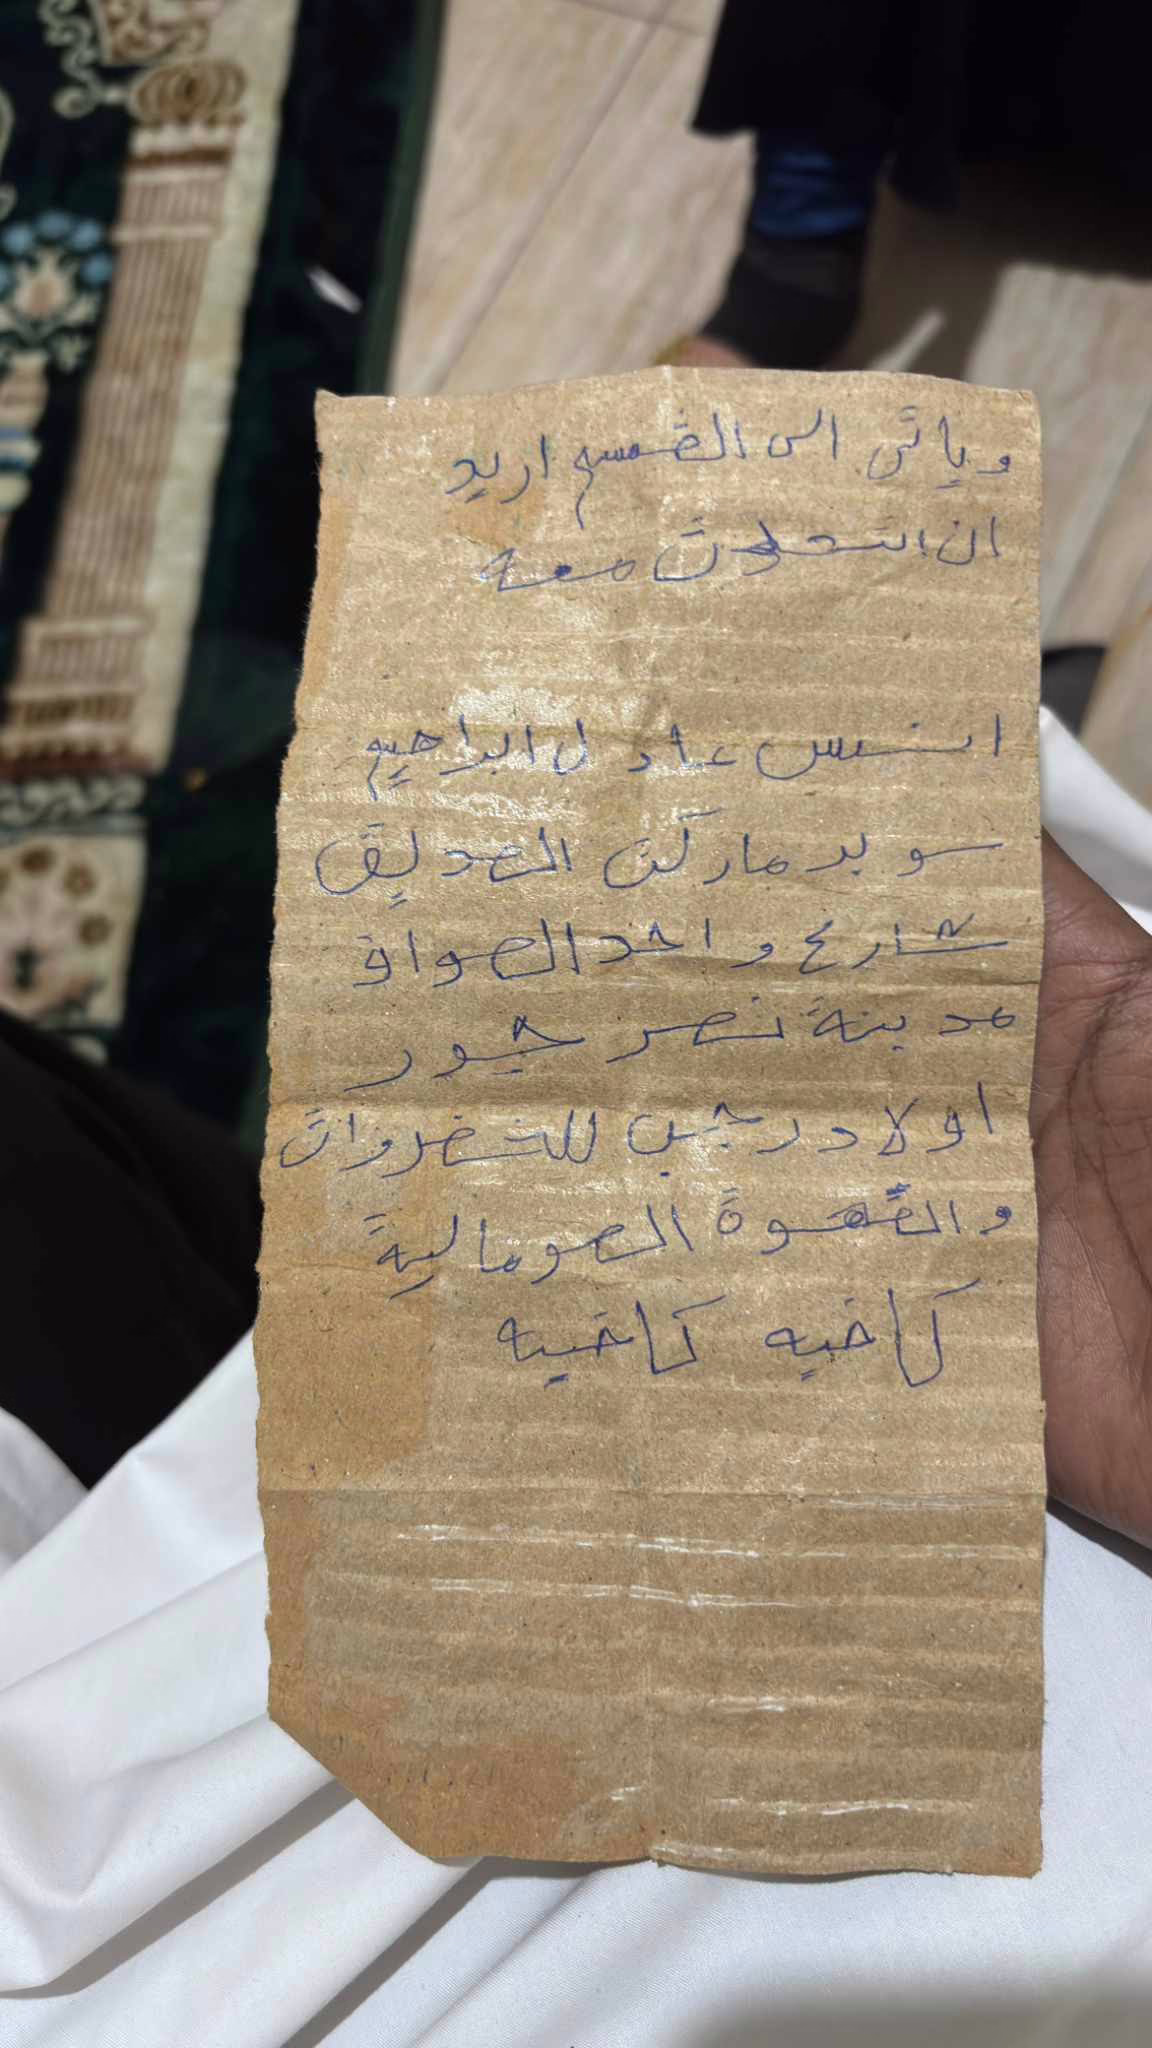 وياتى الى القسم اريد
ان اتحدث معه
انس عادل ابراهيم
سوبر ماركت الصديق
شارع واحد الصواف
مدينة نصر جيور
اولاد رجب للخضروات
والقهوة الصومالية
كافيه كافيه